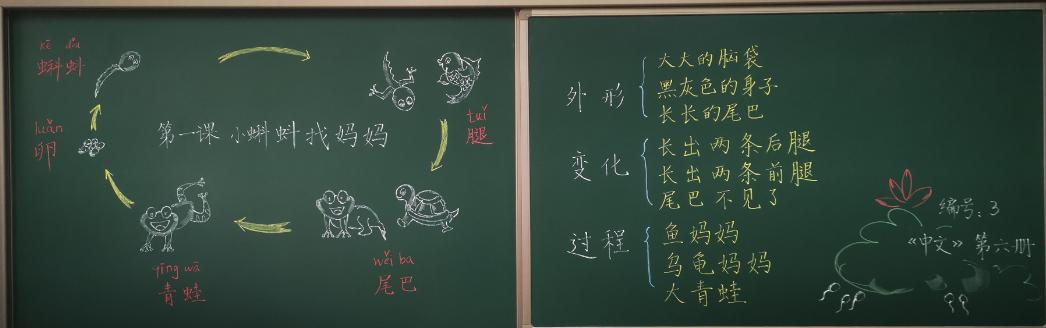 kē dǒu
蝌蚪
luǎn
卵
第一课 小蝌蚪找妈妈
tuǐ
腿
yīng wā
青蛙
wěi ba
尾巴
外形
大大的脑袋
黑灰色的身子
长长的尾巴
变化
长出两条后腿
长出两条前腿
尾巴不见了
过程
鱼妈妈
乌龟妈妈
大青蛙
编号:3
《中文》第六册